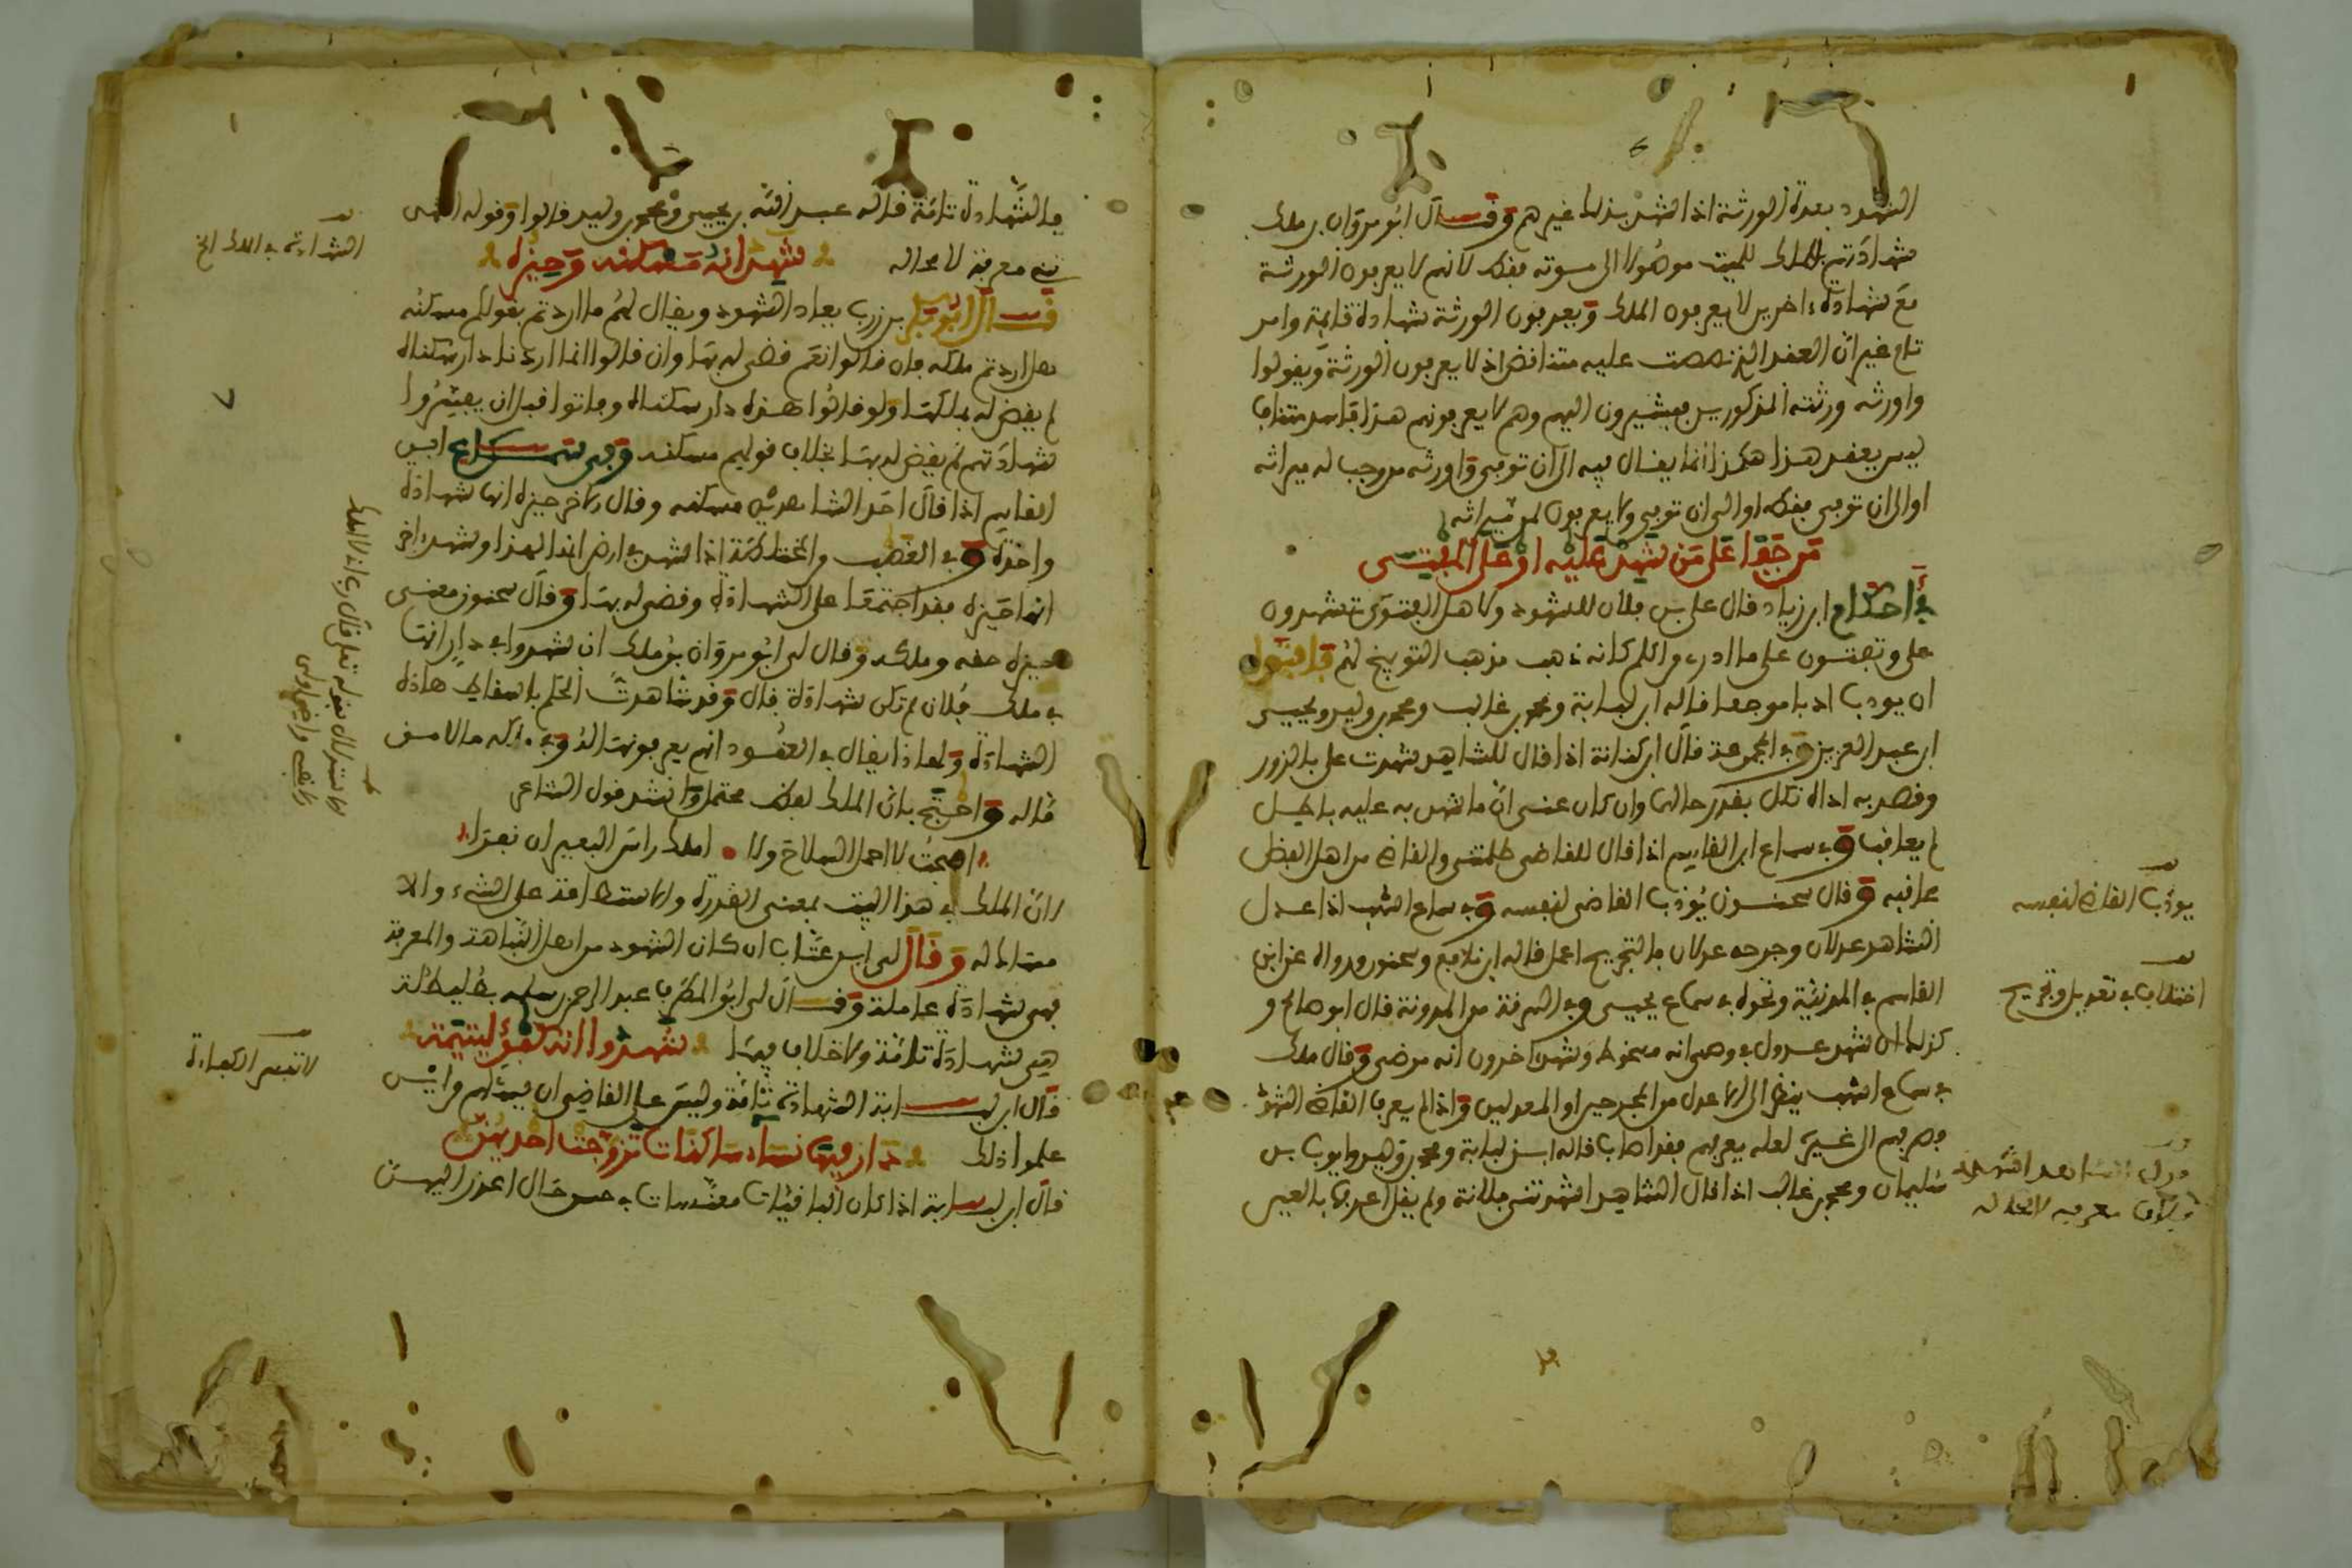 الشهود بعدة الورثة اذا شهد بذلك غيرهم وقال ابو مروان بن ملك
شهادتهم بالملك للميت موصولا الى موته بفك لانهم لا يعرفون الورثة
مع شهادة اخرين لا يعرفون الملك ويعرفون الورثة شهادة قايمة وامر
تام غير ان العقد الذي نصصت عليه متناقض اذ لا يعرفون الورثة ويقولوا
واورثه ورثته المذكورين فيشيرون اليهم وهم لا يعرفونهم هذا فاسد متناف
ليس يعقد هذا هكذا انما يقال فيه الى ان توفي واورثه من وجب له ميراثه
او الى ان توفي فقط او الى ان توفي ولا يعرفون لمن ميراثه
من جفا على من شهد عليه او على المفتي
في احكام ابن زياد قال على بن فلان للشهود ولاهل الفتوى تشهدون
علي وتفتون علي ما ادري من اكلم كانه ذهب مذهب التوبيخ لهم فافتوا
ان يودب ادبا موجعا قاله ابن لبابة ومحمد بن غالب ومحمد بن وليد ويحيى
ابن عبد العزيز وفي المجموعة قال ابن كنانة اذا قال للشاهد شهدت علي بالزور
وقصد به اذاه نكل بقدر حالهما وان كان عنى ان ما شهد به عليه باطل
لم يعاقب وفي سماع ابن القاسم اذا قال للقاضي ظلمتني والقاضي من اهل الفضل
عاقبه وقال سحنون يؤدب القاضي لنفسه وفي سماع اشهب اذا عدل
الشاهد عدلان وجرحه عدلان فالتجريح اعمل قاله ابن نافع وسحنون ورواه عن ابن
القاسم في المدنية ونحوه في سماع يحيى وفي السرقة من المدونة قال ابو صالح و
كذلك ان شهد عدول في وصي انه مسخوط وشهد اخرون انه مرضي وقال ملك
في سماع اشهب ينظر الى الاعدل من المجرحين او المعدلين واذا لم يعرف القاضي الشهود
فصرفهم الى غيره لعله يعرفهم فقد اصاب قاله ابن لبابة ومحمد بن وليد وايوب بن
سليمان ومحمد بن غالب اذا قال الشاهد اشهدتني فلانة ولم يقل اعرفها بالعين
يودب القاضي لنفسه
اختلاف في تعديل وتجريح
الشاهد اشهدتني
معرفة لا محالة
فالشهادة تامة قاله عبد الله بن يحيى ومحمد بن وليد قالوا وقوله اشهدتني
معرفة لا محالة شهد انه مسكنه وحيزه
قال ابو بكر بن زرب يعاد الشهود ويقال لهم ما اردتم بقولكم مسكنه
هل اردتم ملكه فان قالوا نعم قضي له بها وان قالوا انما اردنا دار سكناه
لم يقض له بملكها ولو قالوا هذه دار سكناه وماتوا قبل ان يفسروا
شهادتهم لم يقض له بها بخلاف قولهم مسكنه وفي سماع ابن
القاسم اذا قال احد الشاهدين مسكنه وقال الاخر حيزه انها شهادة
واحدة وفي الغصب والمختلطة اذا شهد في ارض انها لهذا وشهد اخر
انها حيزه فقد اجتمعا على الشهادة وقضي له بها وقال سحنون معنى
حيزه حقه وملكه وقال لي ابو مروان بن ملك ان شهدوا في دار انها
في ملك فلان لم تكن شهادة قال وقد شاهدت الحكم باسقاط هاذه
الشهادة ولماذا يقال في العقود انهم يعرفونها له وفي ملكه مالا من
ماله واحتج بان الملك لفظ محتمل وانشد قول الشاعر
اصبحت لا احمل السلاح ولا املك راس البعير ان نفرا
لان الملك في هذا البيت بمعنى القدرة والاستطاعة على الشيء والا
مضاف له وقال لي ابن عتاب ان كان الشهود من اهل النباهة والمعرفة
فهي شهادة عاملة وقال لي ابو المطرف عبد الرحمن بن سلمة بطليطلة
هي شهادة تامة ولا خلاف فيها شهدوا انه كفؤ ليتيمة
قال ابن لبابة الشهادة تامة وليس على القاضي ان يسئلهم من اين
علموا ذلك دار فيها نساء ساكنات تزوجت احديهن
قال ابن لبابة اذا كان الباقيات معتدات في حسن حال اعذر اليهن
الشهادة في الملك الخ
لا تفسر الكفاءة